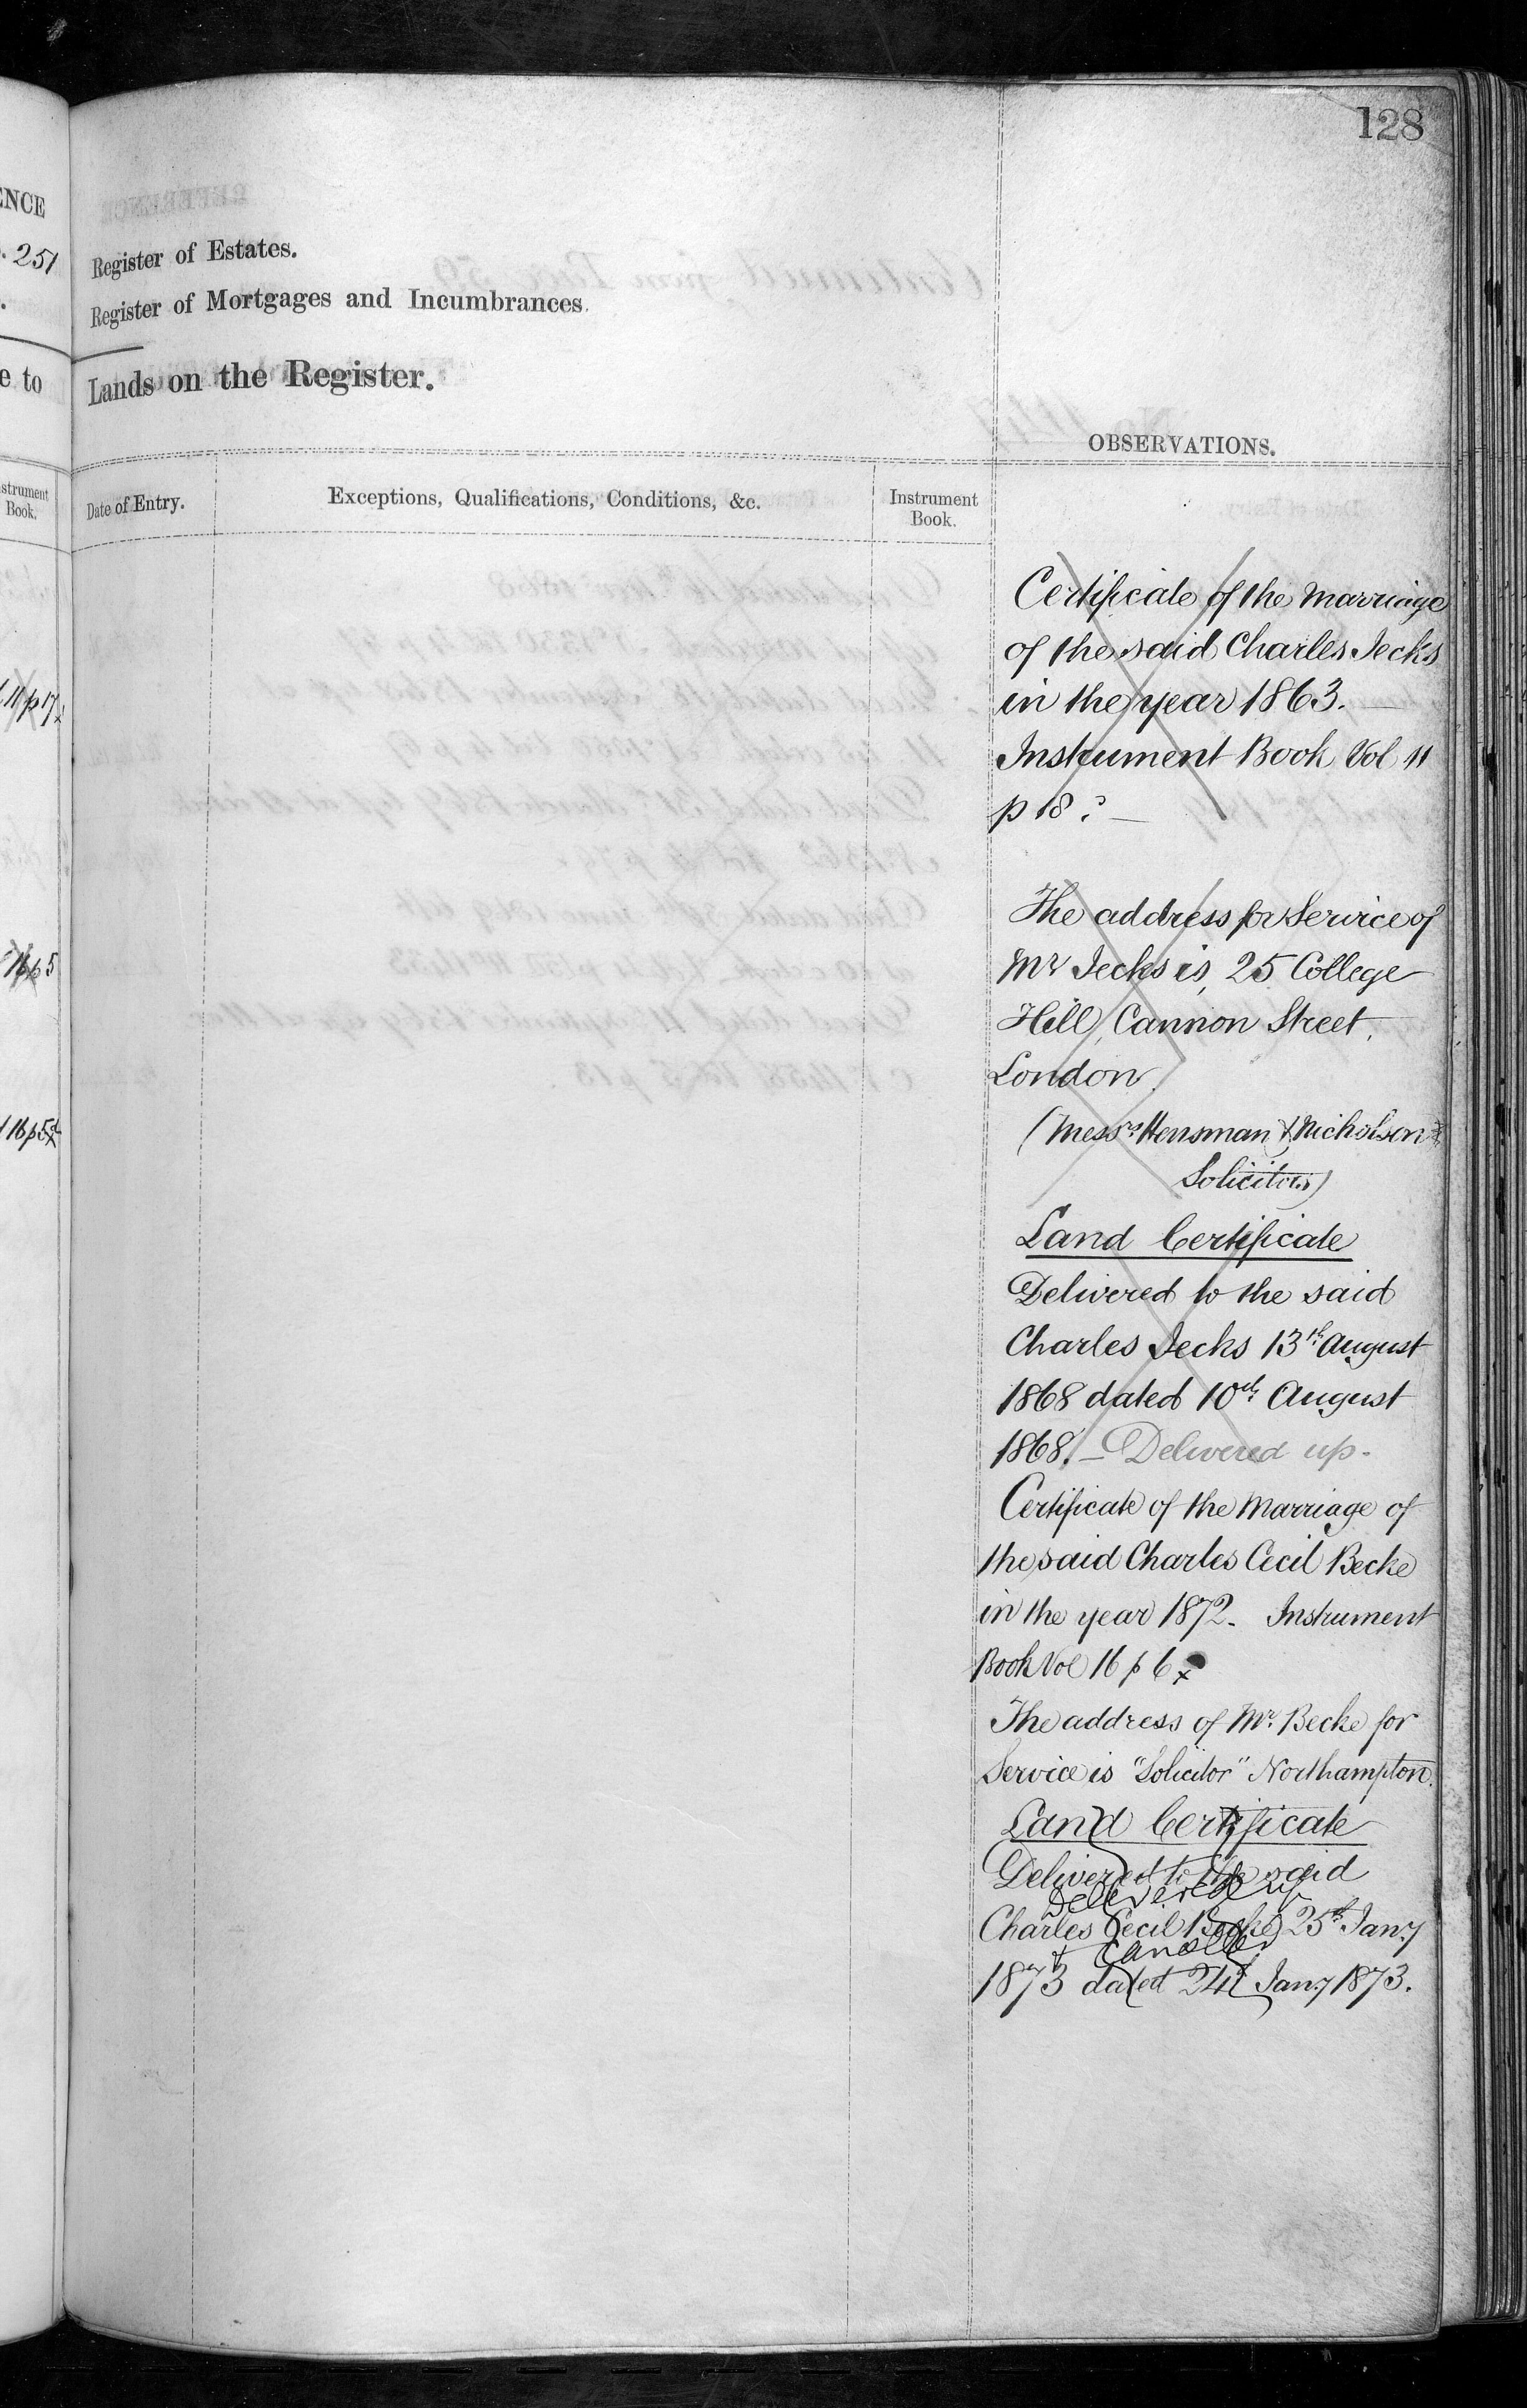 128
ENCE
251
e to
Instrument
Book.
11 p 17
16 p 5
16 p 5
Register of Estates.
Register of Mortgages and Incumbrances.
Lands on the Register.
OBSERVATIONS.
Date of Entry.
Exceptions, Qualifications, Conditions, &c.
Instrument
Book.
Certificate of the Marriage
of the said Charles Jecks
in the year 1863.
Instrument Book Vol 11
p 18.
The address for Service of
Mr Jecks is, 25 College
Hill, Cannon Street,
London.
(Messrs Hensman & Nicholson
Solicitors)
Land Certificate
Delivered to the said
Charles Jecks 13th August
1868 dated 10th August
1868. – Delivered up.
Certificate of the Marriage of
the said Charles Cecil Becke
in the year 1872. Instrument
Book Vol 16 p 6
The address of Mr. Becke for
Service is "Solicitor" Northampton.
Land Certificate
Delivered to the said
Delivered up
Charles Cecil Becke 25th Jany
& Cancelled
1873 dated 24th Jany 1873.